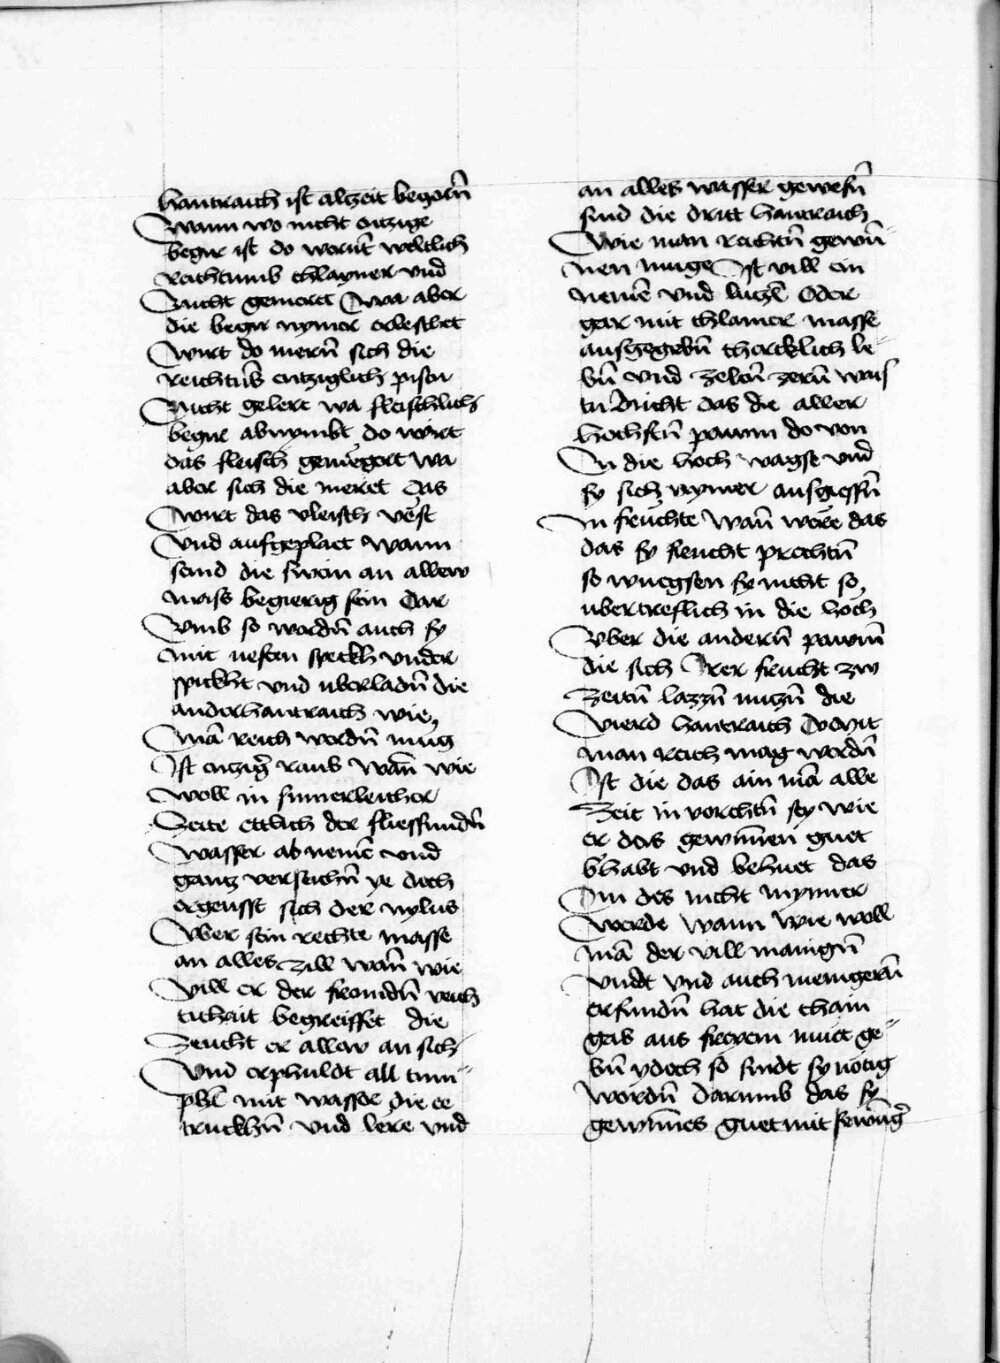 hantraich ist alczeit begern̄
Wann wo nicht enczige
begir ist do werūt weltlich
Reichtumb chlayner vnd
Nicht gemert Wa aber
die begir nymer erlestlet
Wirt do mern̄ sich die
reichtūb encziglich pistu
Nicht gelert wa fleischlich
begir abnymbt do wirt
das fleisch gemegert wa
aber sich die meret Das
Wirt das vleisch vest
Vnd aufgeplaet Wann
seind die swein an allew
mass begierig sein Dar
Vmb so werdn̄ auch sy
mit uesten speckh vnder
spickht vnd uberladn̄ die
ander hantraich wie
Mā reich werdn̄ mug
Ist encziḡ raub wan̄ wie
woll in sumerleicher
Zeite ettlich der fliessundn̄
Wasser ab nemē vnd
gancz verseichn̄ ye doch
ergeusst sich der nylus
Vber sein rechte masse
an alles zill wan̄ wie
Vill er der fremdn̄ veich
tichait begreiffet die
Zeucht er allew an sich
Vnd erphuldt all tum
phl̄ mit wasser die ee
truckhn̄ vnd lere vnd
an alles wasser gewesn̄
sind die dritt hantraich
Wie man reichtn̄ gewin̄
nen muge Ist vill ein
nemē vnd luczl̄ Oder
gar mit chlainer masse
ausgegebn̄ chercklich le
bn̄ vnd zeletn̄ zern̄ wais
tu Nicht das die aller
hochstn̄ pawm do von
In die hoch wagse vnd
sy sich nymer ausgiessn̄
In frewchte Wan̄ were das
das sy frucht prechtn̄
so wuegsen sy nicht so
ubertreflich in die hoch
Vber die andern̄ pawm
die sich Irer frucht zw
Zeitn̄ lazzn̄ niczn̄ die
Vierd hantraich Domit
man reich mag werdn̄
Ist die das ain mā alle
Zeit in vorchtn̄ sey wie
er das gewinnen guet
bhabt vnd behuet das
Im des nicht mynner
Werde Wann Wie woll
mā der vill mainign̄
Vndt vnd auch menigern̄
erfundn̄ hat die chain
gab aus freyem muet ge
bn̄ ydoch so sindt sy nötig
Wordn̄ darumb das sy
gewunnes guet mit sewmiḡ